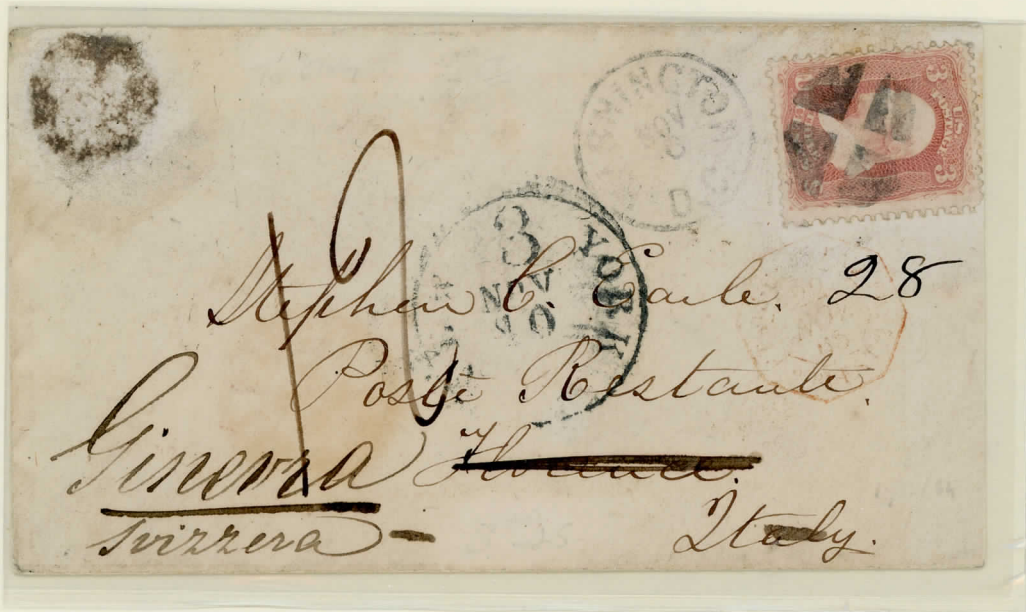 WASHINGTON
NOV
8
D.C.
3 U.S. POSTAGE 3
YORK
3
NOV
10
Stephen C. Earle. 28
Poste Restante.
Ginevra Florence.
Svizzera Italy.